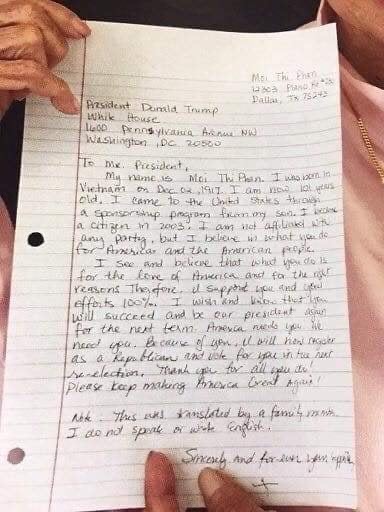 Moi Thi Phan
12303 Plano Rd
Dallas, TX 75243
President Donald Trump
White House
1600 Pennsylvania Avenue NW
Washington, DC 20500
To Mr. President,
My name is Moi Thi Phan. I was born in
Vietnam on Dec 02, 1917. I am now 101 years
old. I came to the United States through
a sponsorship program from my son. I became
a citizen in 2003. I am not affiliated with
any party, but I believe in what you do
for America and the American people.
I see and believe that what you do is
for the love of America and for the right
reasons. Therefore, I support you and your
efforts 100%. I wish and know that you
will succeed and be our president again
for the next term. America needs you. We
need you. Because of you, I will now register
as a Republican and vote for you in the near
re-election. Thank you for all you do!
Please keep making America Great Again!
Note: This was translated by a family
I do not speak or write English.
Sincerely and forever your